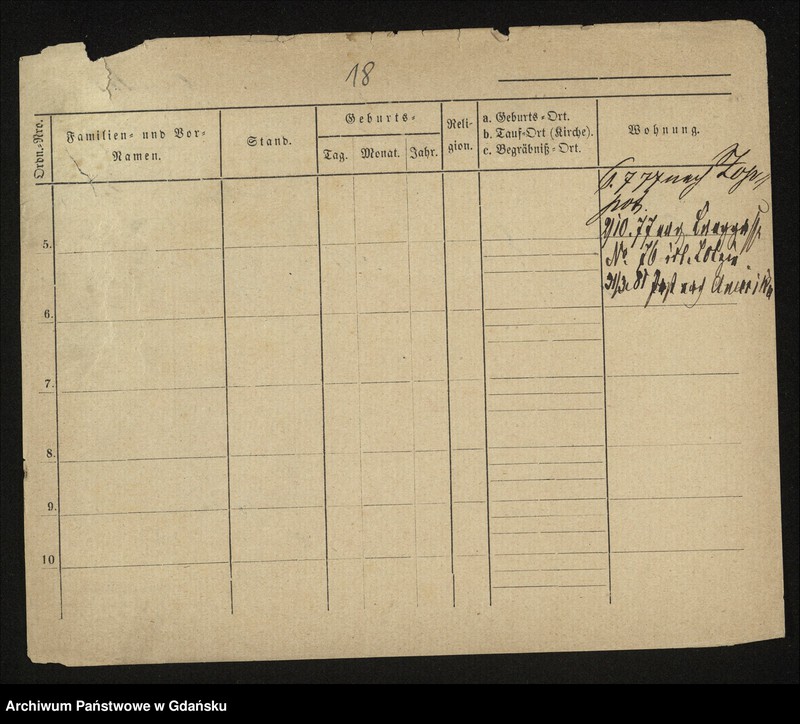 18
Ordn.-Nro.
Familien- und Vor-
Namen.
Stand.
Geburts-
Tag. Monat. Jahr.
Reli-
gion.
a. Geburts-Ort.
b. Tauf-Ort (Kirche).
c. Begräbniß-Ort.
Wohnung.
6. 7 77 nach Zop-
pot.
10. 77 nach Langgasse
No. 76
81 nach Amerika
5.
6.
7.
8.
9.
10
Archiwum Państwowe w Gdańsku